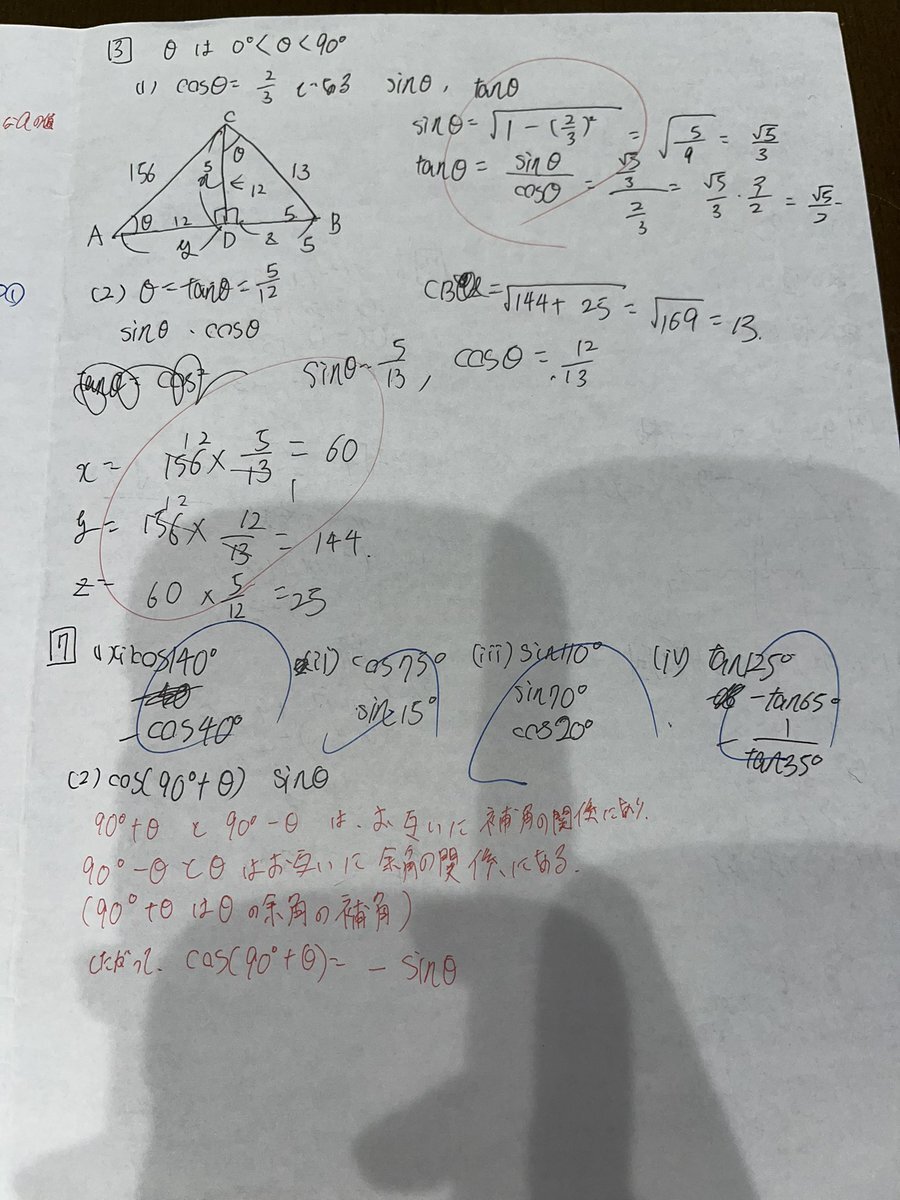 3 θは 0°<θ<90°
(1) cosθ= 2/3 sinθ, tanθ
aの値
sinθ=√1-(2/3)² = √5/9 = √5/3
tanθ= sinθ/cosθ = √5/3/2/3 = √5/3・3/2 = √5/2
C
156 5 θ 13
x ← 12
A θ 12 D 5 B
y z 5
①
(2) θ=tanθ= 5/12
sinθ・cosθ
CB =√144+25 =√169 = 13.
sinθ= 5/13, cosθ= 12/13
x= 156× 5/13 = 60
12
1
y= 156× 12/13 = 144.
12
z= 60 × 5/12 =25
7 (1)(i) cos140° (ii) cos75° (iii) sin110° (iv) tan125°
sin15° sin70° -tan65°
-cos40° cos20° - 1/tan35°
(2) cos(90°+θ) sinθ
90°+θ と 90°-θ は、お互いに補角の関係にあり.
90°-θとθはお互いに余角の関係にある.
(90°+θはθの余角の補角)
したがって、cos(90°+θ)= - sinθ